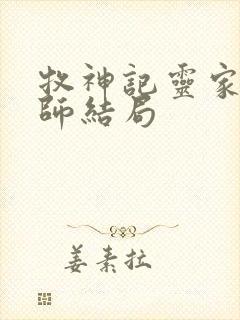 牧神記靈家
師結局
姜素拉